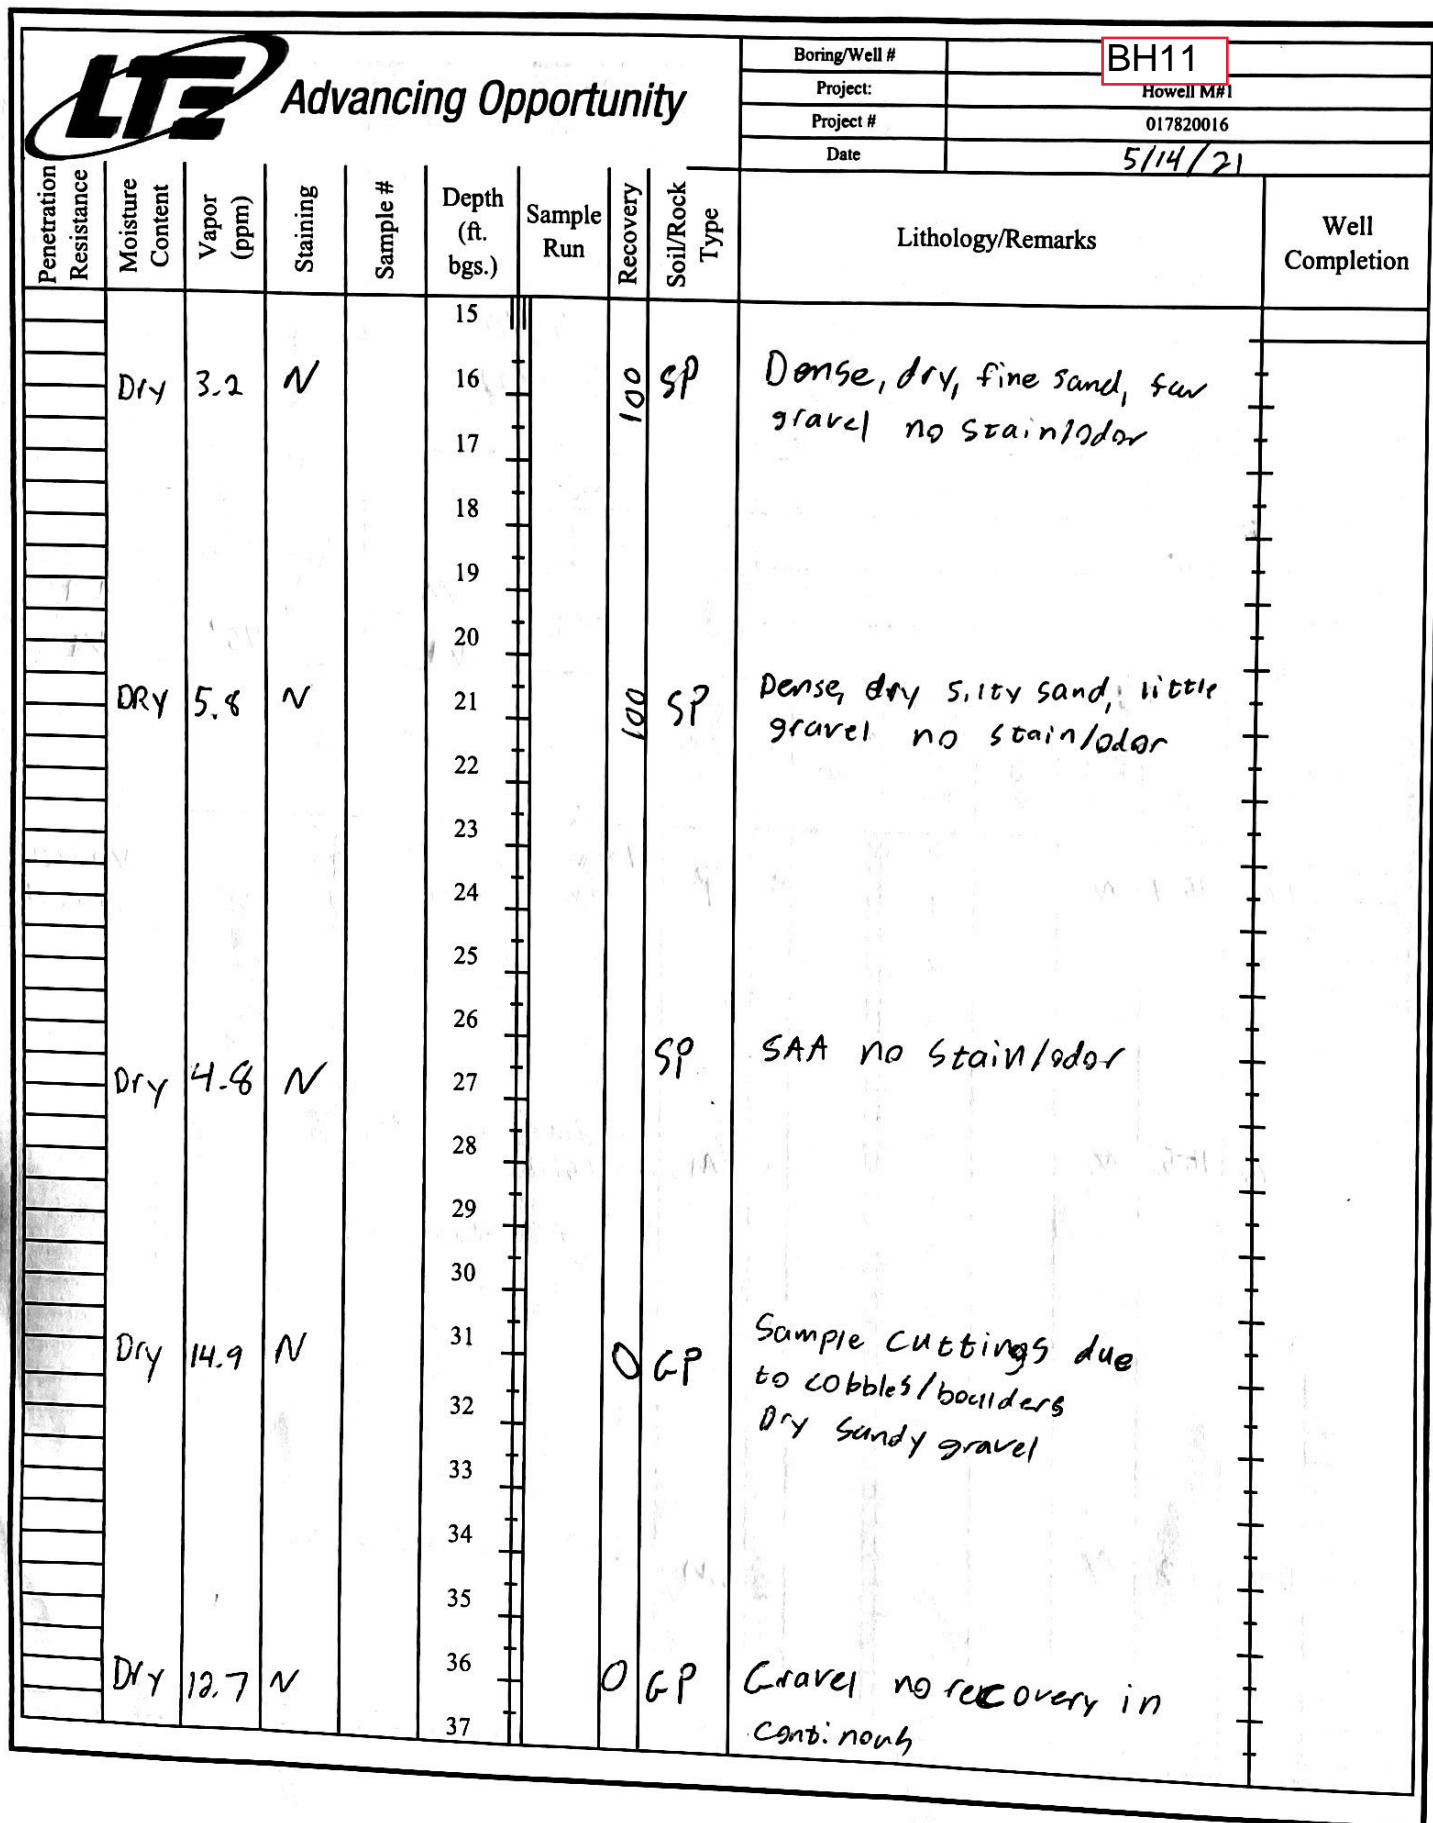 LTE Advancing Opportunity
Boring/Well # BH11
Project: Howell M#1
Project # 017820016
Date 5/14/21
Penetration Resistance
Moisture Content
Vapor (ppm)
Staining
Sample #
Depth (ft. bgs.)
Sample Run
Recovery
Soil/Rock Type
Lithology/Remarks
Well Completion
15
Dry 3.2 N 16 100 SP Dense, dry, fine sand, few
17 gravel no stain/odor
18
19
20
DRY 5.8 N 21 100 SP Dense, dry silty sand, little
gravel no stain/odor
22
23
24
25
26
SP SAA no stain/odor
Dry 4.8 N 27
28
29
30
Dry 14.9 N 31 0 GP Sample cuttings due
to cobbles/boulders
32 Dry Sandy gravel
33
34
35
Dry 12.7 N 36 0 GP Gravel no recovery in
37 continous